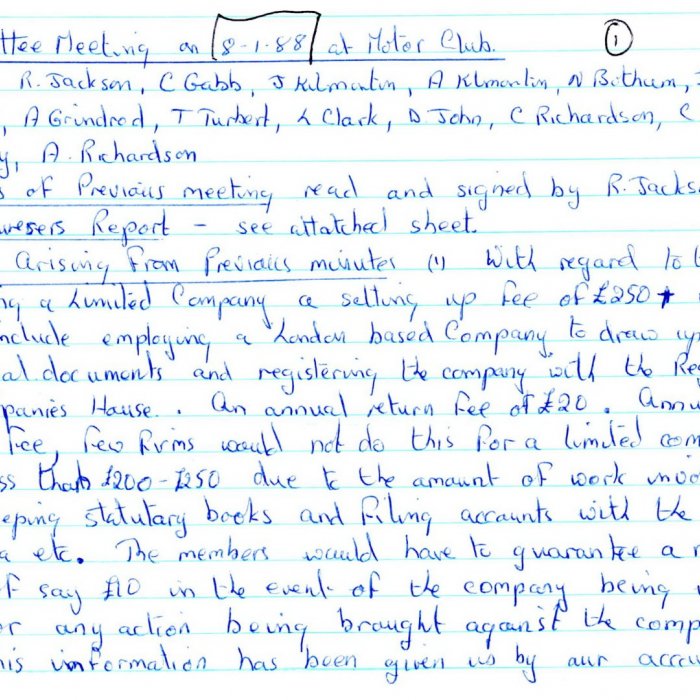 ttee Meeting on 8-1-88 at Motor Club. 1
R. Jackson, C Gabb, J Kilmartin, A Klmartin, N Bitham,
, A Grindrod, T Turbert, L Clark, D John, C Richardson, C
y, A. Richardson
s of Previous meeting read and signed by R. Jacks
uresers Report - see attatched sheet.
arising from Previous minutes (1) With regard to
ng a Limited Company a setting up fee of £250+
nclude employing a London based Company to draw up
al documents and registering the company with the Re
panies House. An annual return fee of £20. Annu
fee, few firms would not do this for a limited com
ss than £200-£250 due to the amount of work invo
eping statutary books and filing accounts with the
etc. The members would have to guarantee a
f say £10 in the event of the company being
or any action being brought against the comp
his information has been given us by our accou